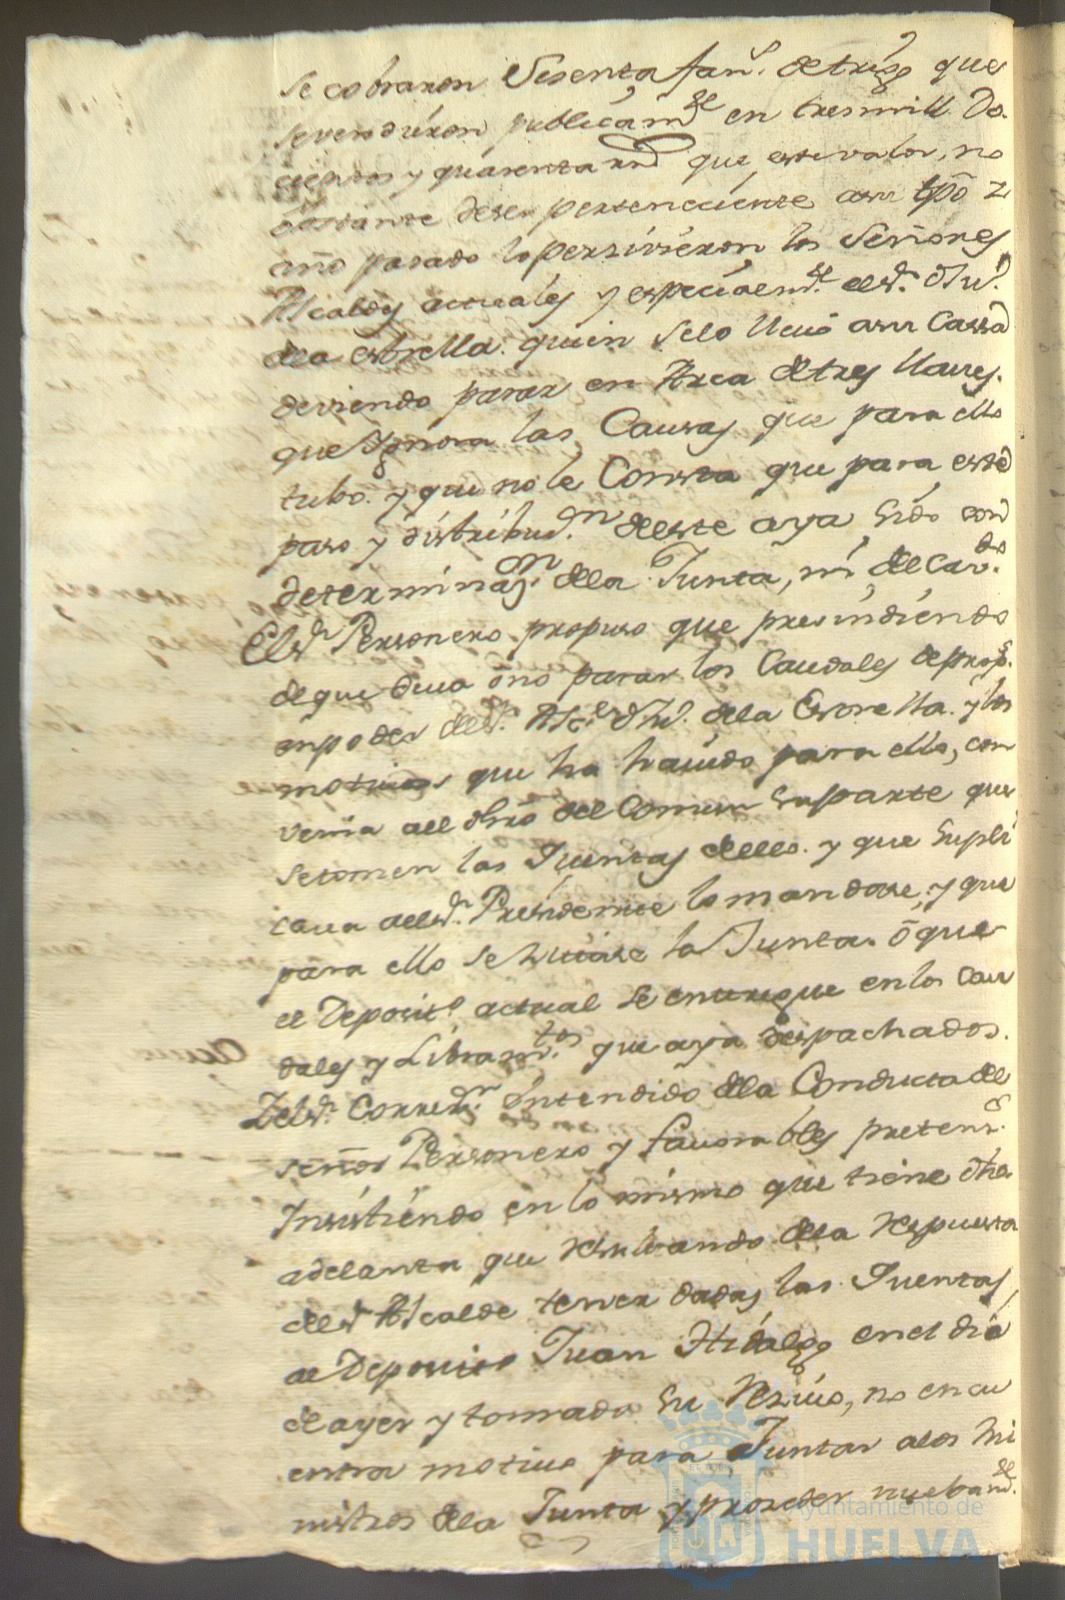 se cobraron Sesenta fan.s de trigo que
se vendieron publicam.te en tres mill Do
cientos y quarenta r.s que este valor, no
obstante de ser perteneciente a su tpõ Z
año pasado lo percivieron los Señores
Alcaldes actuales y especialm.te el S.r D.n Ju.o
de la estrella. quien se lo llevó a su Cassa
deviendo parar en Arca de tres llaves.
que Ygnora las Causas que para ello
tubo. y que no le Consta que para este
paso y distribuz.on de este aya sido con
determinaz.on de la Junta, ni de Cav.do
El S.r Personero propuso que presindiendo
de que deva ò no parar los Caudales de prop.s
en poder del S.r Alc.e D.n Ju.o de la Estrella. y los
motivos que ha havido para ello, con
venia al dro del Comun su parte que
se tomen las Quentas de ello. y que supli
cava al S.r Presidente lo mandase, y que
para ello se hiciese la Junta. ò que
el Deposit.o actual se entregue en los Cau
dales y Libram.tos que aya despachados.
Z el S.r Corred.r entendido de la Conducta del
señor Personero y favorables pretens.s
Insistiendo en lo mismo que tiene dho
adelanta que resultando de la respuesta
del S.r Alcalde tener dadas las Quentas
el Deposit.o Juan Hidalgo en el dia
de ayer y tomado su Recivo, no encu
entra motivo para Juntar a los Mi
nistros de la Junta y proceder nuebam.te
Ayuntamiento de
HUELVA